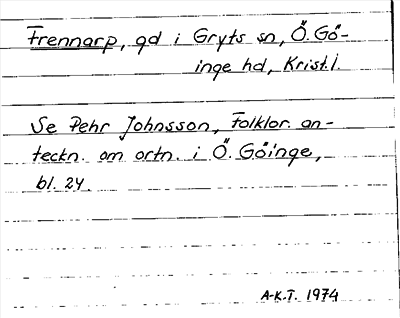 Frennarp, gd i Gryts sn, Ö. Gö-
inge hd, Krist. l.
Se Pehr Johnsson, Folklor. an-
teckn. om ortn. i Ö. Göinge,
bl. 24.
A-K.T. 1974